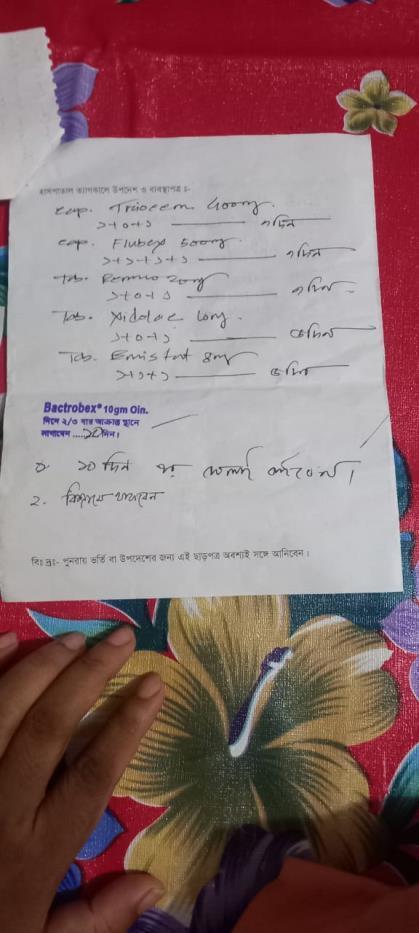 হাসপাতাল ত্যাগকালে উপদেশ ও ব্যবস্থাপত্র ঃ-
cap. 400mg.
১+০+১ ——— ৭দিন
cap. Flubex 500mg.
১+১+১+১ ——— ৭দিন
Tab. 20mg
১+০+১ ——— ৭দিন
Tab. Xidolac 10mg.
১+০+১ ———
Tab. Emistat 8mg
১+১+১ ———
Bactrobex® 10gm Oin.
দিনে ২/৩ বার আক্রান্ত স্থানে
লাগাবেন .....১০দিন।
১০ দিন পর
২. বিশ্রামে থাকবেন
বিঃ দ্রঃ- পুনরায় ভর্তি বা উপদেশের জন্য এই ছাড়পত্র অবশ্যই সঙ্গে আনিবেন।